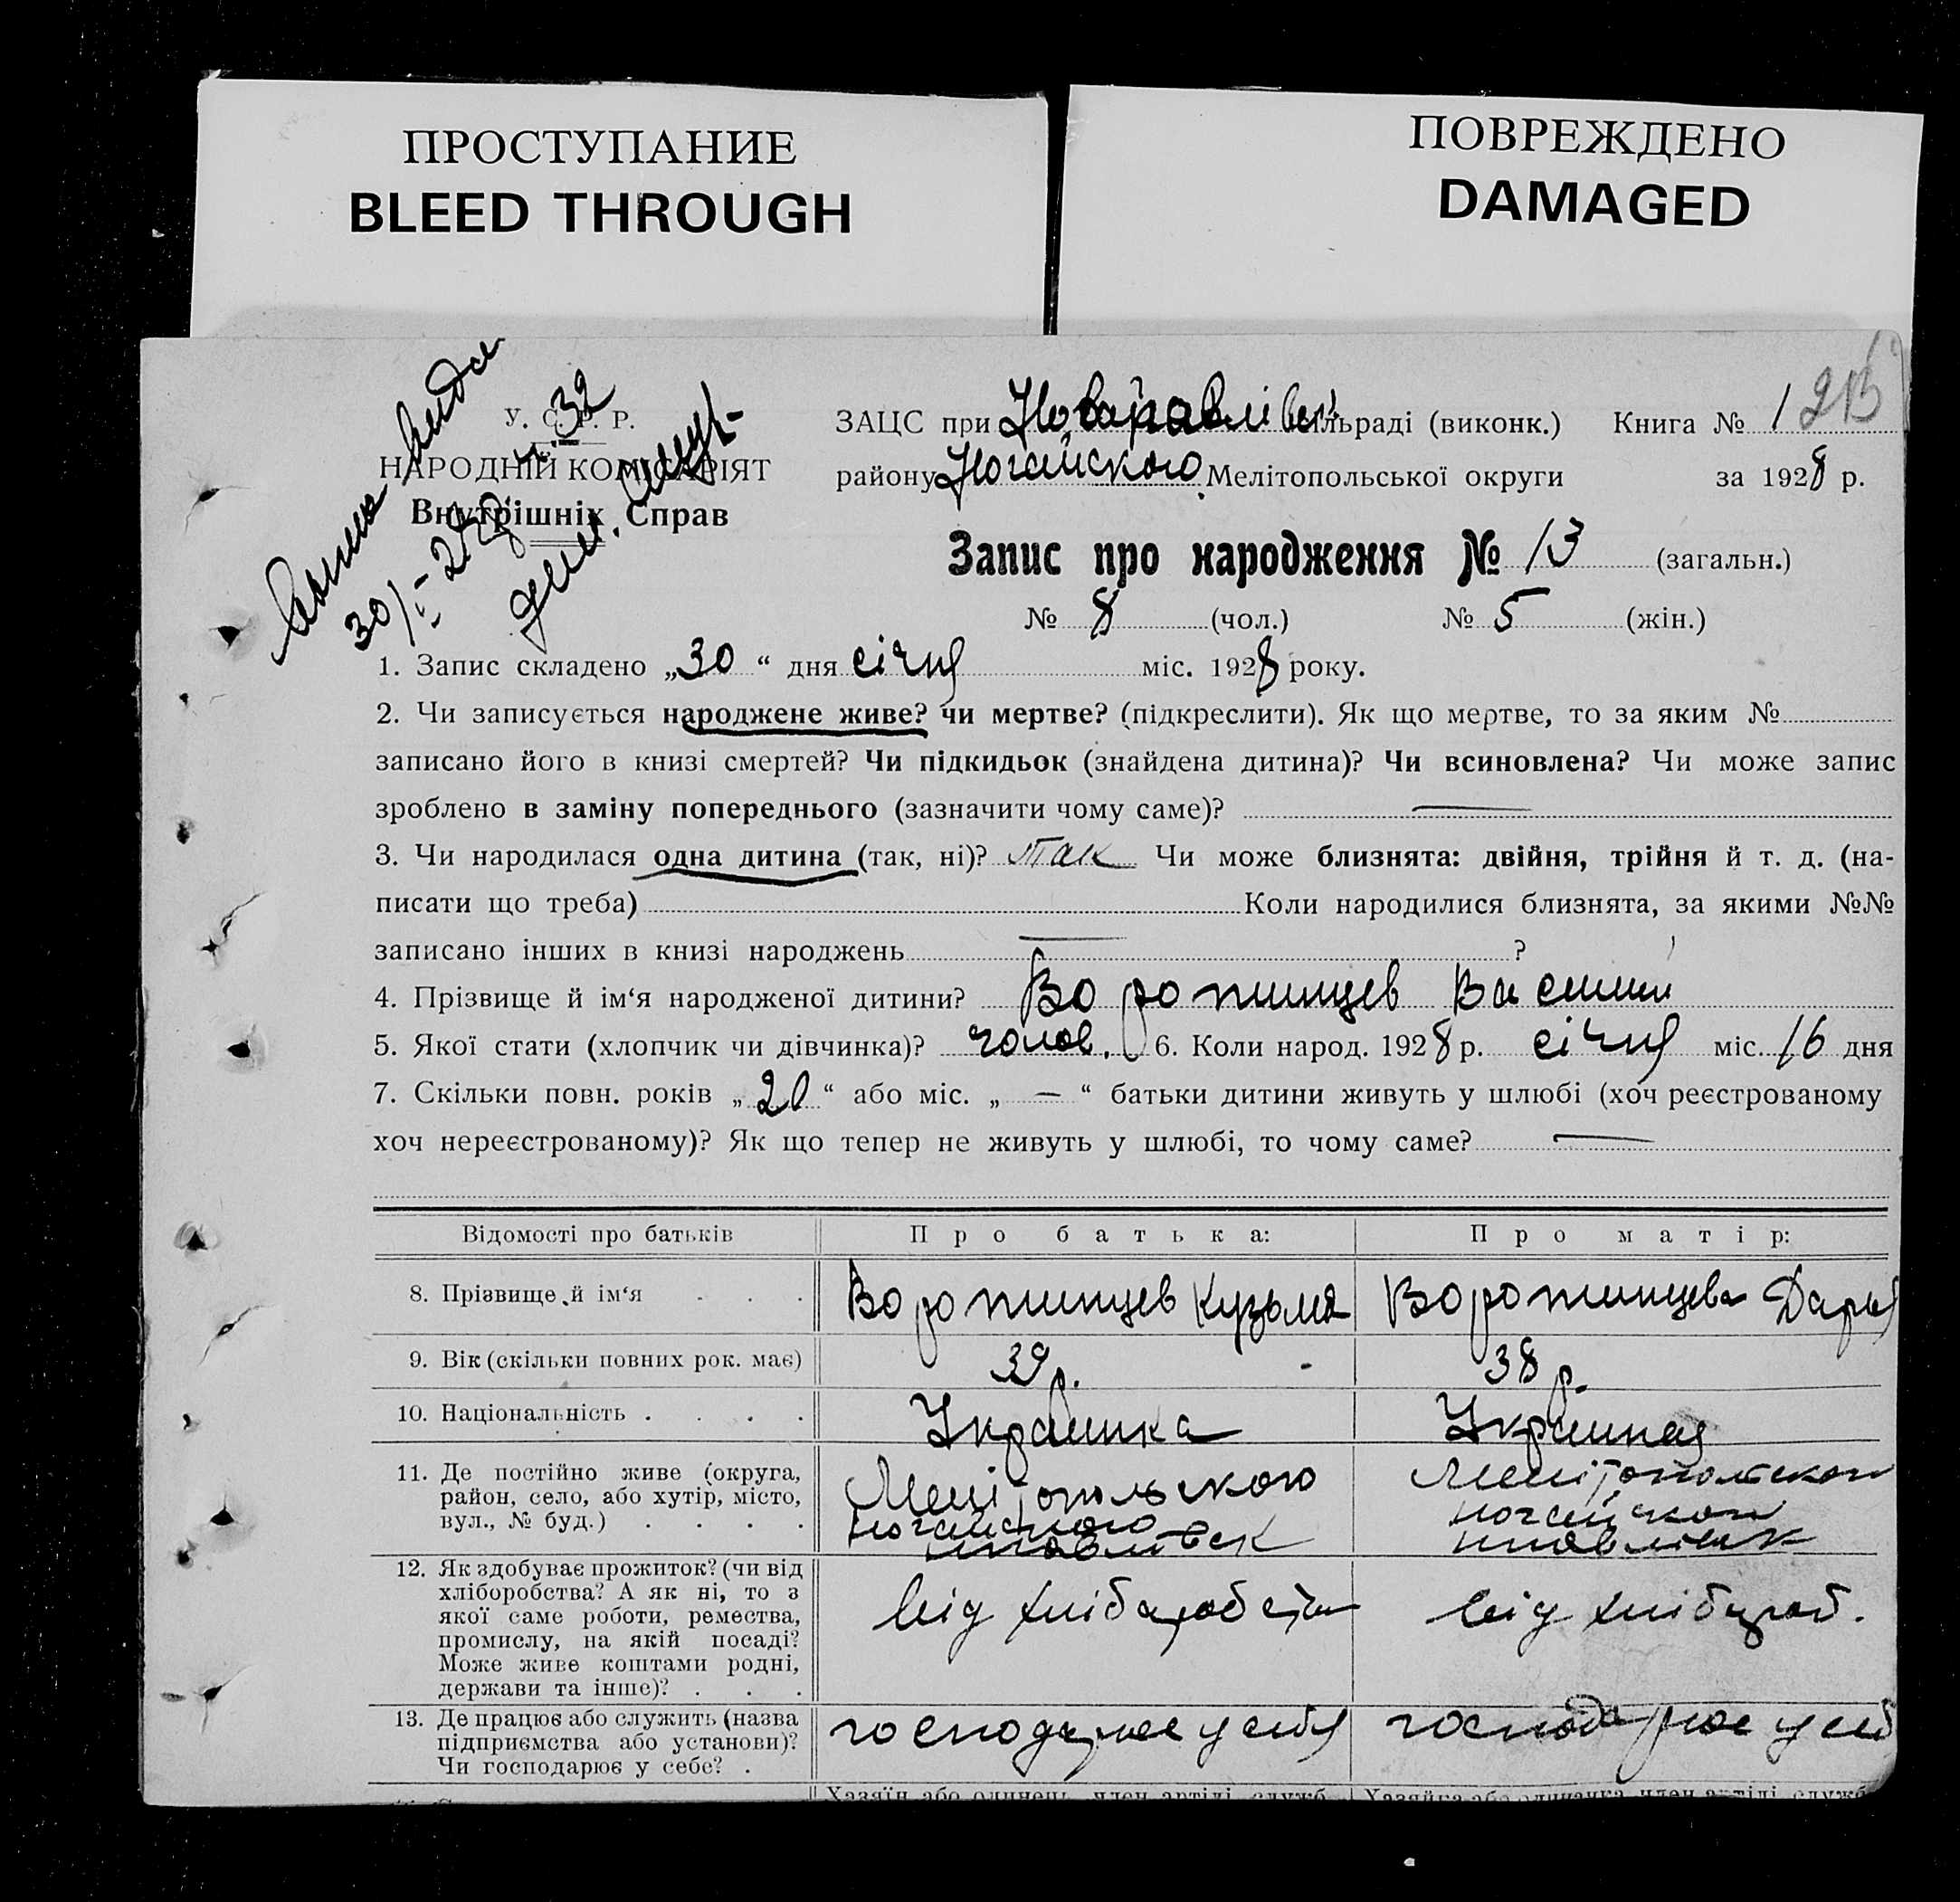 ПРОСТУПАНИЕ
BLEED THROUGH
ПОВРЕЖДЕНО
DAMAGED
У. С. Р. Р.
НАРОДНІЙ КОМІСАРІЯТ
Внутрішніх Справ
30/I-28
ч. 32
ЗАЦС при сільраді (виконк.) Книга № 1
району Ногайского Мелітопольської округи за 1928 р.
Запис про народження № 13 (загальн.)
№ 8 (чол.) № 5 (жін.)
1. Запис складено „30“ дня січня міс. 1928 року.
2. Чи записується народжене живе? чи мертве? (підкреслити). Як що мертве, то за яким №
записано його в книзі смертей? Чи підкидьок (знайдена дитина)? Чи всиновлена? Чи може запис
зроблено в заміну попереднього (зазначити чому саме)? —
3. Чи народилася одна дитина (так, ні)? так Чи може близнята: двійня, трійня й т. д. (на-
писати що треба) Коли народилися близнята, за якими №№
записано інших в книзі народжень — ?
4. Прізвище й ім‘я народженої дитини? Воропинцев Василий
5. Якої стати (хлопчик чи дівчинка)? чолов. 6. Коли народ. 1928 р. січня міс. 16 дня
7. Скільки повн. років „20“ або міс. „—“ батьки дитини живуть у шлюбі (хоч реєстрованому
хоч нереєстрованому)? Як що тепер не живуть у шлюбі, то чому саме? —
Відомості про батьків Про батька: Про матір:
8. Прізвище й ім‘я . . . Воропинцев Кузьма Воропинцева Дарья
9. Вік (скільки повних рок. має) 39 р. 38 р.
10. Національність . . . . Украинка Украинка
11. Де постійно живе (округа, Мелітопольского
район, село, або хутір, місто,
вул., № буд.) . . . . ногайского
12. Як здобуває прожиток? (чи від
хліборобства? А як ні, то з
якої саме роботи, ремества, від хлібаробства від хлібороб.
промислу, на якій посаді?
Може живе коштами родні,
держави та інше)? . . .
13. Де працює або служить (назва господарює у себя господарює у себ
підприємства або установи)?
Чи господарює у себе? .
Хазяїн або одинець, член артілі, служб. Хазяйка або одиначка, член артілі, служб